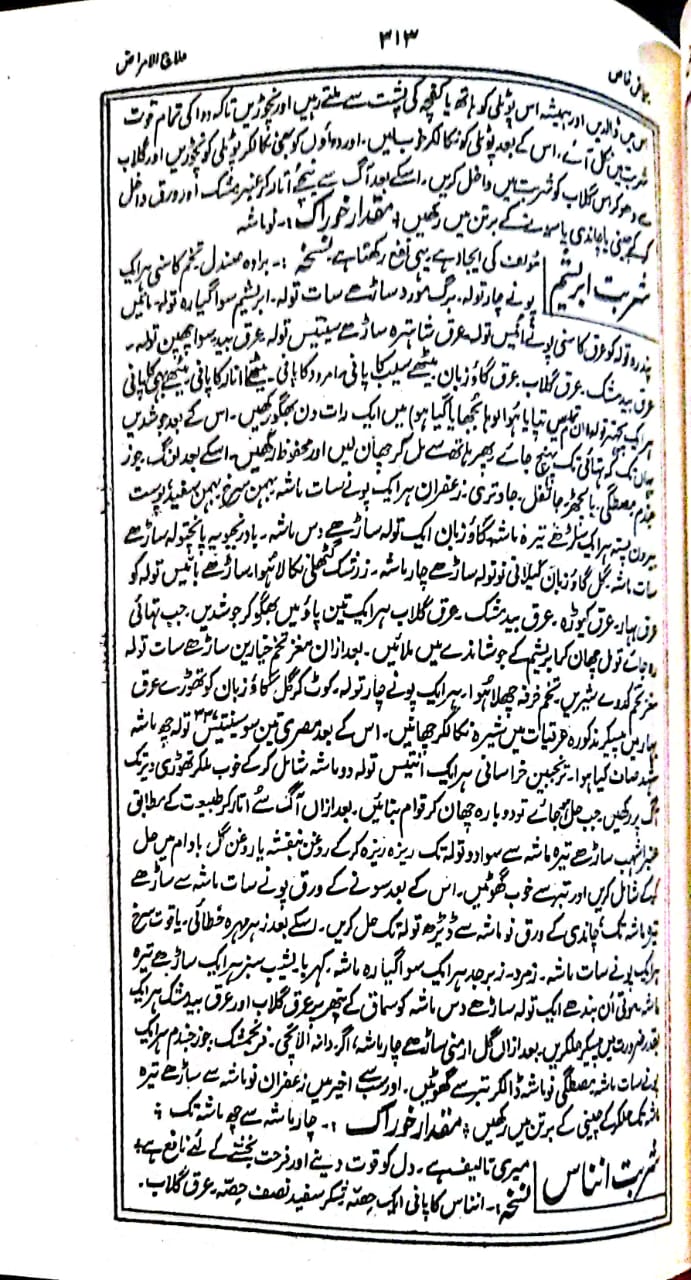 ۳۱۳
علاج الامراض
بیاض خاص
اس میں ڈالدیں اور ہمیشہ اس پوٹلی کو ہاتھ یا کفچہ کی پشت سے ملتے رہیں اور نچوڑیں تاکہ دوا کی تمام قوت
شربت میں نکل آئے۔ اس کے بعد پوٹلی کو نکالکر خوب ملیں۔ اور دواؤں کو بھی نکالکر پوٹلی کو نچوڑیں اور گلاب
سے دھوکر اس گلاب کو شربت میں داخل کریں۔ اسکے بعد آگ سے نیچے اُتار کر عنبر، مشک اور ورق داخل
کرکے چینی یا چاندی یا سونے کے برتن میں رکھیں، مقدار خوراک :۔ نو ماشہ
شربت ابریشم
مؤلف کی ایجاد ہے یہی نفع رکھتا ہے نسخہ :۔ برادہ صندل۔ تخم کاسنی ہر ایک
پونے چار تولہ۔ برگ مورد ساڑھے سات تولہ۔ ابریشم سوا گیارہ تولہ۔ بائیں
پندرہ تولہ کو عرق کاسنی پونے اُنیس تولہ۔ عرق شاہترہ ساڑھے سینتیس تولہ۔ عرق بید سوا چھپن تولہ۔
عرق بید مشک۔ عرق گلاب۔ عرق گاؤ زبان۔ میٹھے سیب کا پانی۔ امرود کا پانی۔ میٹھے انار کا پانی۔ میٹھے بہی کا پانی
ہر ایک پچھتر تولہ ان میں تپایا ہوا لوہا بجھایا گیا ہو) میں ایک رات دن بھگو رکھیں۔ اس کے بعد جوشدیں
یہاں تک کہ تہائی تک پہنچ جائے پھر ہاتھ سے مل کر چھان لیں اور محفوظ رکھیں۔ اسکے بعد لونگ۔ جوز
جندم۔ مصطگی۔ بالچھڑ۔ جائفل۔ جاوتری۔ زعفران ہر ایک پونے سات ماشہ۔ بہمن سرخ۔ بہمن سفید۔ پوست
بیرون پستہ ہر ایک ساڑھے تیرہ ماشہ۔ گاؤ زبان ایک تولہ ساڑھے دس ماشہ۔ بادرنجبویہ پانچ تولہ ساڑھے
سات ماشہ۔ گل گاؤ زبان گیلانی نو تولہ ساڑھے چار ماشہ۔ زرشک گٹھلی نکالا ہوا، ساڑھے بائیس تولہ کو
عرق بہار۔ عرق کیوڑہ۔ عرق بید مشک۔ عرق گلاب ہر ایک تین پاؤ میں بھگو کر جوشدیں۔ جب تہائی
رہ جائے تو مل چھان کر ابریشم کے جوشاندے میں ملائیں۔ بعد ازاں مغز تخم خیارین ساڑھے سات تولہ
مغز تخم کدوے شیریں۔ تخم خرفہ چھلا ہوا۔ ہر ایک پونے چار تولہ۔ کوٹ کر گل گاؤ زبان کو تھوڑے عرق
بہار میں پیسکر مذکورہ عرقیات میں شیرہ نکالکر چھانیں۔ اس کے بعد مصری تین سو سینتیس ۳۳۷ تولہ چھ ماشہ
شہد صاف کیا ہوا۔ ترنجبین خراسانی ہر ایک اُنتیس تولہ دو ماشہ شامل کرکے خوب ملکر تھوڑی دیر تک
آگ پر رکھیں جب حل ہو جائے تو دوبارہ چھان کر قوام بنائیں۔ بعد ازاں آگ سے اُتار کر طبیعت کے مطابق
عنبر اشہب ساڑھے تیرہ ماشہ سے سوا دو تولہ تک ریزہ ریزہ کرکے روغن بنفشہ یا روغن گل بادام میں حل
کرکے شامل کریں اور تبر سے خوب گھوٹیں۔ اس کے بعد سونے کے ورق پونے سات ماشہ سے ساڑھے
تیرہ ماشہ تک، چاندی کے ورق نو ماشہ سے ڈیڑھ تولہ تک حل کریں۔ اسکے بعد زہر مہرہ خطائی۔ یاقوت سرخ
ہر ایک پونے سات ماشہ۔ زمرد۔ زبرجد ہر ایک سوا گیارہ ماشہ۔ کہربا۔ یشب سبز ہر ایک ساڑھے تیرہ
ماشہ۔ موتی اَن بندھے ایک تولہ ساڑھے دس ماشہ کو سماق کے پتھر پر عرق گلاب اور عرق بید مشک ہر ایک
بقدر ضرورت میں پیسکر حل کریں۔ بعد ازاں گل ارمنی ساڑھے چار ماشہ، اگر۔ دانہ الائچی۔ فرنجمشک۔ جوز جندم ہر ایک
پونے سات ماشہ۔ مصطگی نو ماشہ ڈالکر تبر سے گھوٹیں۔ اور سب سے اخیر میں زعفران نو ماشہ سے ساڑھے تیرہ
ماشہ تک حل کرکے چینی کے برتن میں رکھیں، مقدار خوراک :۔ چار ماشہ سے چھ ماشہ تک
شربت انناس
میری تالیف ہے۔ دل کو قوت دینے اور فرحت بخشنے کے لئے نافع ہے
نسخہ :۔ انناس کا پانی ایک حصّہ نیشکر سفید نصف حصّہ۔ عرق گلاب۔